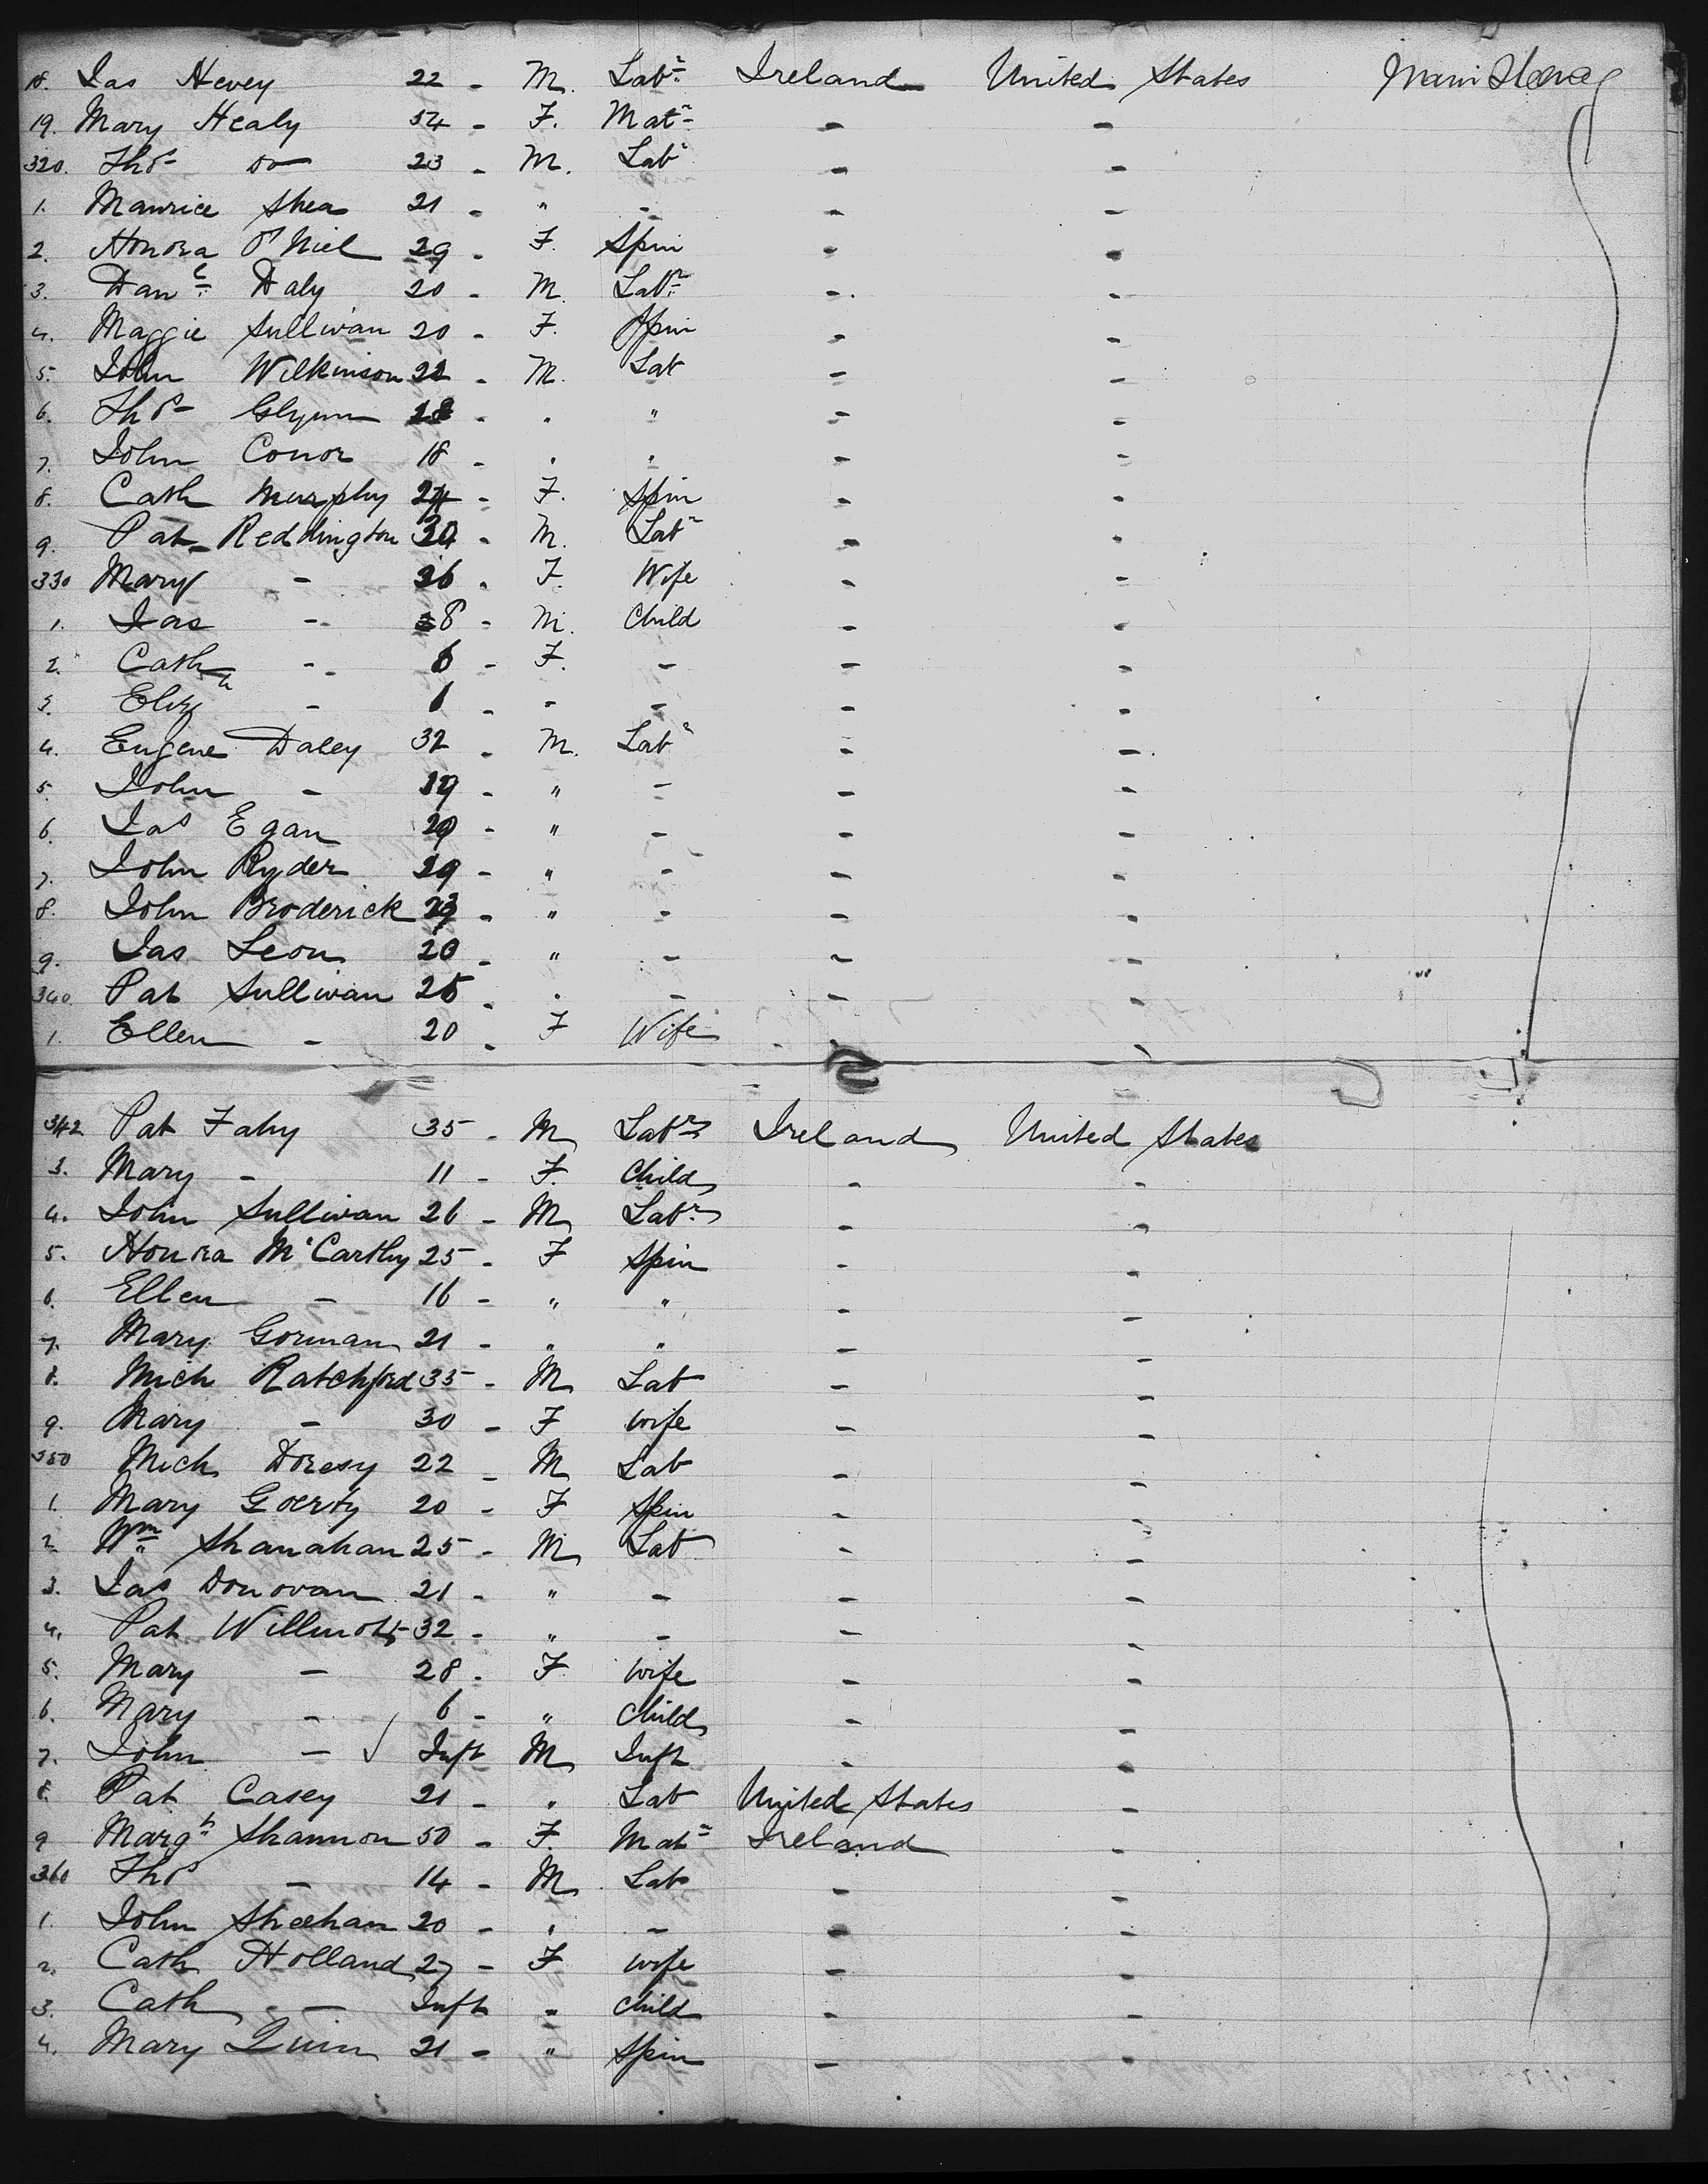 18. Jas Hevey 22 - M. Labr Ireland United States Main Steerag
19. Mary Healy 54 - F. Matn - -
320. Thos do 23 - M. Labr - -
1. Maurice Shea 21 - " - - -
2. Honora O'Niel 29 - F. Spin - -
3. Danl Daly 20 - M. Labr - -
4. Maggie Sullivan 20 - F. Spin - -
5. John Wilkinson 22 - M. Lab - -
6. Thos Glynn - " " - -
7. John Conor 18 - " " - -
8. Cath Murphy 24 - F. Spin - -
9. Pat Reddington - M. Labr - -
330 Mary - 26 - F. Wife - -
1. Jas - 8 - M. Child - -
2. Cath - 6 - F. - - -
3. Eliz - - - - - -
4. Eugene Daley 32 - M. Labr - -
5. John - 19 - " - - -
6. Jas Egan 20 - " - - -
7. John Ryder 29 - " - - -
8. John Broderick - " - - -
9. Jas Leon 20 - " - - -
340. Pat Sullivan 25 - " - - -
1. Ellen - 20 - F Wife - -
342 Pat Fahy 35 - M Labr Ireland United States
3. Mary - 11 - F. Child - -
4. John Sullivan 26 - M Labr - -
5. Honora McCarthy 25 - F Spin - -
6. Ellen - 16 - " " - -
7. Mary Gorman 21 - " " - -
8. Mich Ratchford 35 - M Lab - -
9. Mary - 30 - F Wife - -
350 Mich Doresy 22 - M Lab - -
1. Mary Goerty 20 - F Spin - -
2. Wm Shanahan 25 - M Lab - -
3. Jas Donovan 21 - " - - -
4. Pat Willmott 32 - " - - -
5. Mary - 28 - F Wife - -
6. Mary - 6 - " Child - -
7. John - √ Inft M Inft - -
8. Pat Casey 21 - " Lab United States -
9 Margt Shannon 50 - F. Matn Ireland -
360 Thos - 14 - M Lab - -
1. John Sheehan 20 - " - - -
2. Cath Holland 27 - F Wife - -
3. Cath - Inft " Child - -
4. Mary Quinn 21 - " Spin - -